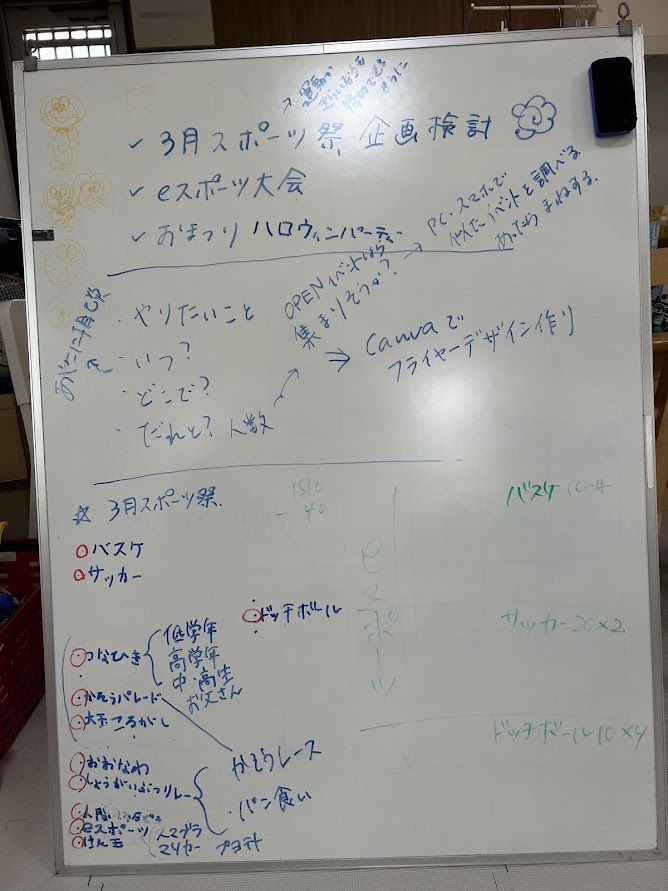 ✓ 3月スポーツ祭 企画検討
✓ eスポーツ大会
✓ おまつり ハロウィンパーティー
・やりたいこと
・いつ?
・どこで?
・だれと? 人数
OPENイベントは
集まりそうか?
→ PC・スマホで
似たイベントを調べる
あったらまねする。
⇒ Canvaで
フライヤーデザイン作り
☆ 3月スポーツ祭.
バスケ
サッカー
・ドッチボール
・つなひき
低学年
高学年
中・高生
お父さん
・かそうパレード
・大玉ころがし
かそうレース
・おおなわ
・しょうがいぶつリレー
・パン食い
・eスポーツ
スマブラ
マリカー プヨテト
・けん玉
180
- 40
eスポーツ
バスケ 10・4
サッカー 20×2
ドッチボール 10×4